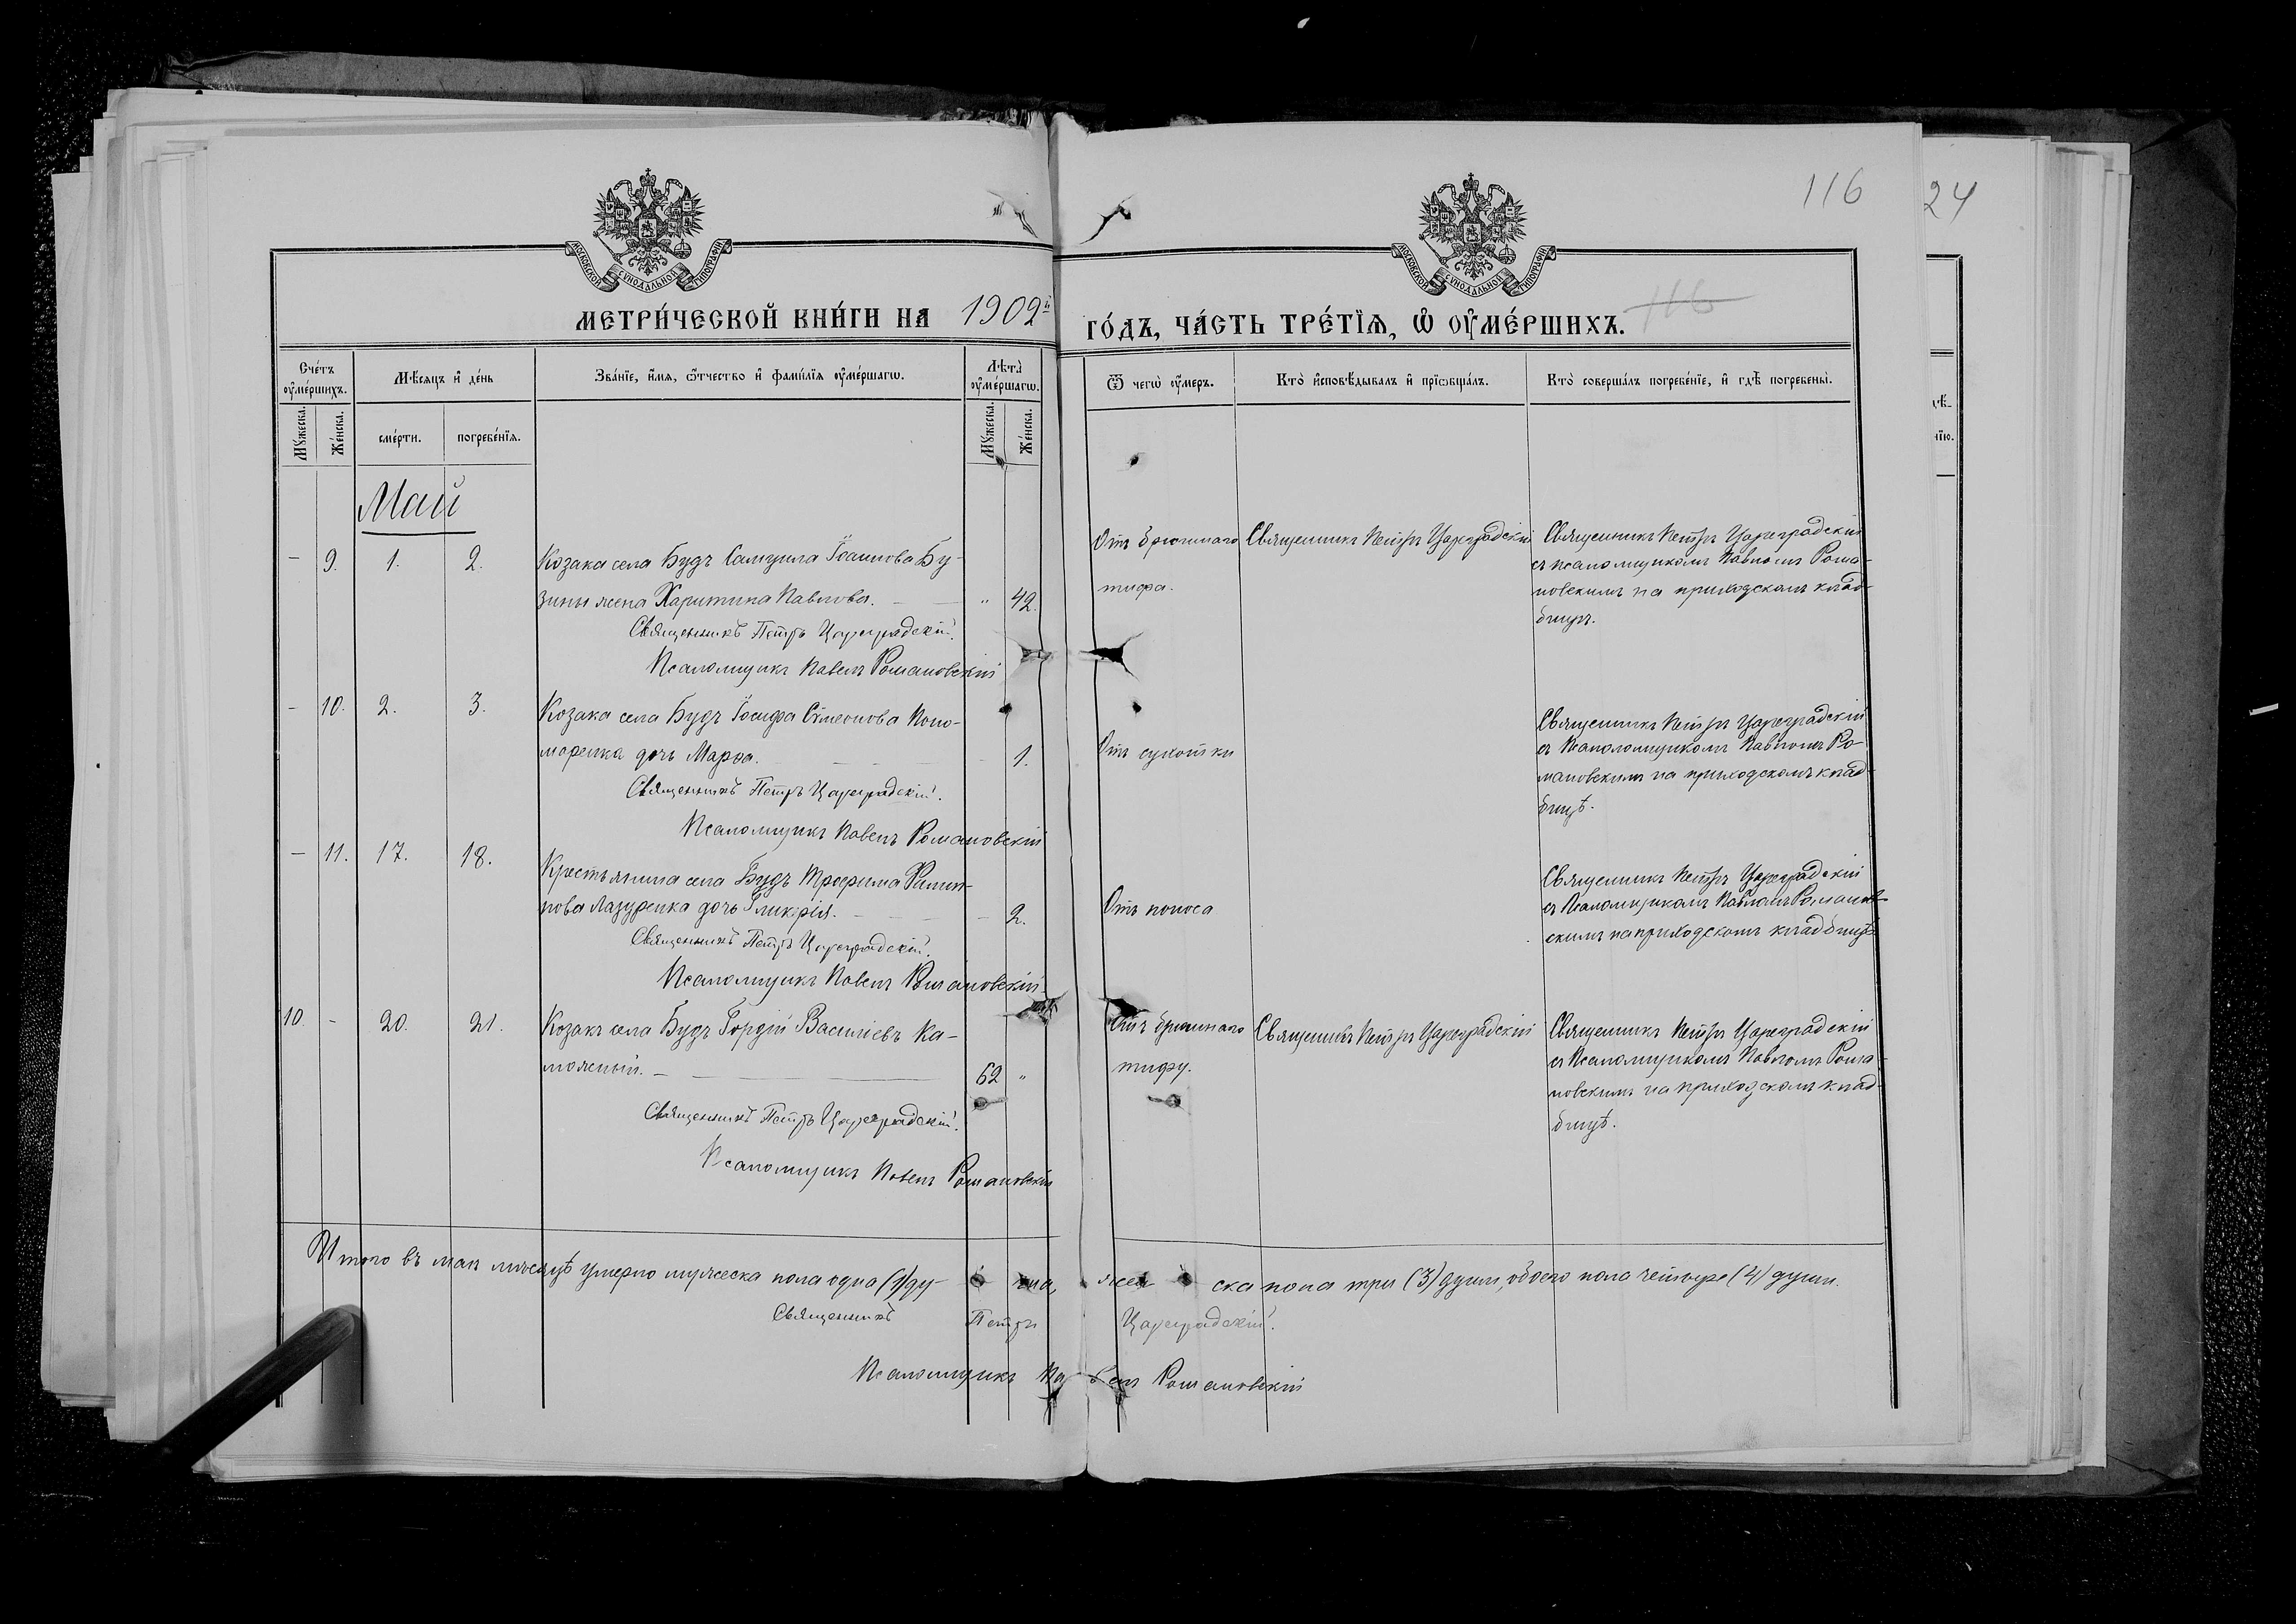 116
24
МОСКОВСКОЙ СѴНОДАЛЬНОЙ ТИПОГРАФІИ
МОСКОВСКОЙ СѴНОДАЛЬНОЙ ТИПОГРАФІИ
МЕТРИ́ЧЕСКОЙ КНИ́ГИ НА 1902й ГО́ДЪ, ЧА́СТЬ ТРЕ́ТЇѦ, Ѡ҆ ОУ҆МЕ́РШИХЪ.
116
Сче́тъ оу҆ме́ршихъ.
Мѣ́сяцъ и҆ де́нь
Зва́нїе, и҆́мя, ѻ҆́тчество и҆ фами́лїя оу҆ме́ршагѡ.
Лѣ́та̀ оу҆ме́ршагѡ.
Ѿ чегѡ̀ оу҆́меръ.
Кто̀ и҆сповѣ́дывалъ и҆ прїѡбща́лъ.
Кто̀ соверша́лъ погребе́нїе, и҆ гдѣ̀ погребены̀.
Мꙋ́жеска.
Же́нска.
сме́рти.
погребе́нїѧ.
Мꙋ́жеска.
Же́нска.
Май
— 9. 1. 2. Козака села Будъ Самуила Іоаннова Бу-
зины жена Харитина Павлова. — — " 42.
Священникъ Петръ Цареградскій.
Псаломщикъ Павелъ Романовскій
Отъ брюшнаго
тифа.
Священникъ Петръ Цареградскій
Священникъ Петръ Цареградскій
съ псаломщикомъ Павломъ Рома-
новскимъ на приходскомъ клад-
бищѣ.
— 10. 2. 3. Козака села Будъ Іосифа Сѵмеонова Поно-
моренка дочь Марѳа. — — — 1.
Священникъ Петръ Цареградскій.
Псаломщикъ Павелъ Романовскій
Отъ сухотки
Священникъ Петръ Цареградскій
съ Псаломщикомъ Павломъ Ро-
мановскимъ на приходскомъ клад-
бищѣ.
— 11. 17. 18. Крестьянина села Будъ Трофима Филип-
пова Лазуренка дочь Гликерія. — — — 2.
Священникъ Петръ Цареградскій.
Псаломщикъ Павелъ Романовскій
Отъ поноса
Священникъ Петръ Цареградскій
съ Псаломщикомъ Павломъ Романов-
скимъ на приходскомъ кладбищѣ
10. - 20. 21. Козакъ села Будъ Гордій Василіевъ Ка-
моленый. — — 62 "
Священникъ Петръ Цареградскій.
Псаломщикъ Павелъ Романовскій
Отъ брюшнаго
тифу.
Священникъ Петръ Цареградскій
Священникъ Петръ Цареградскій
съ Псаломщикомъ Павломъ Рома-
новскимъ на приходскомъ клад-
бищѣ.
Итого въ маѣ мѣсяцѣ умерло мужеска пола одна (1) ду- ша, жен- ска пола три (3) души, обоего пола четыре (4) души.
Священникъ Петръ Цареградскій.
Псаломщикъ Павелъ Романовскій